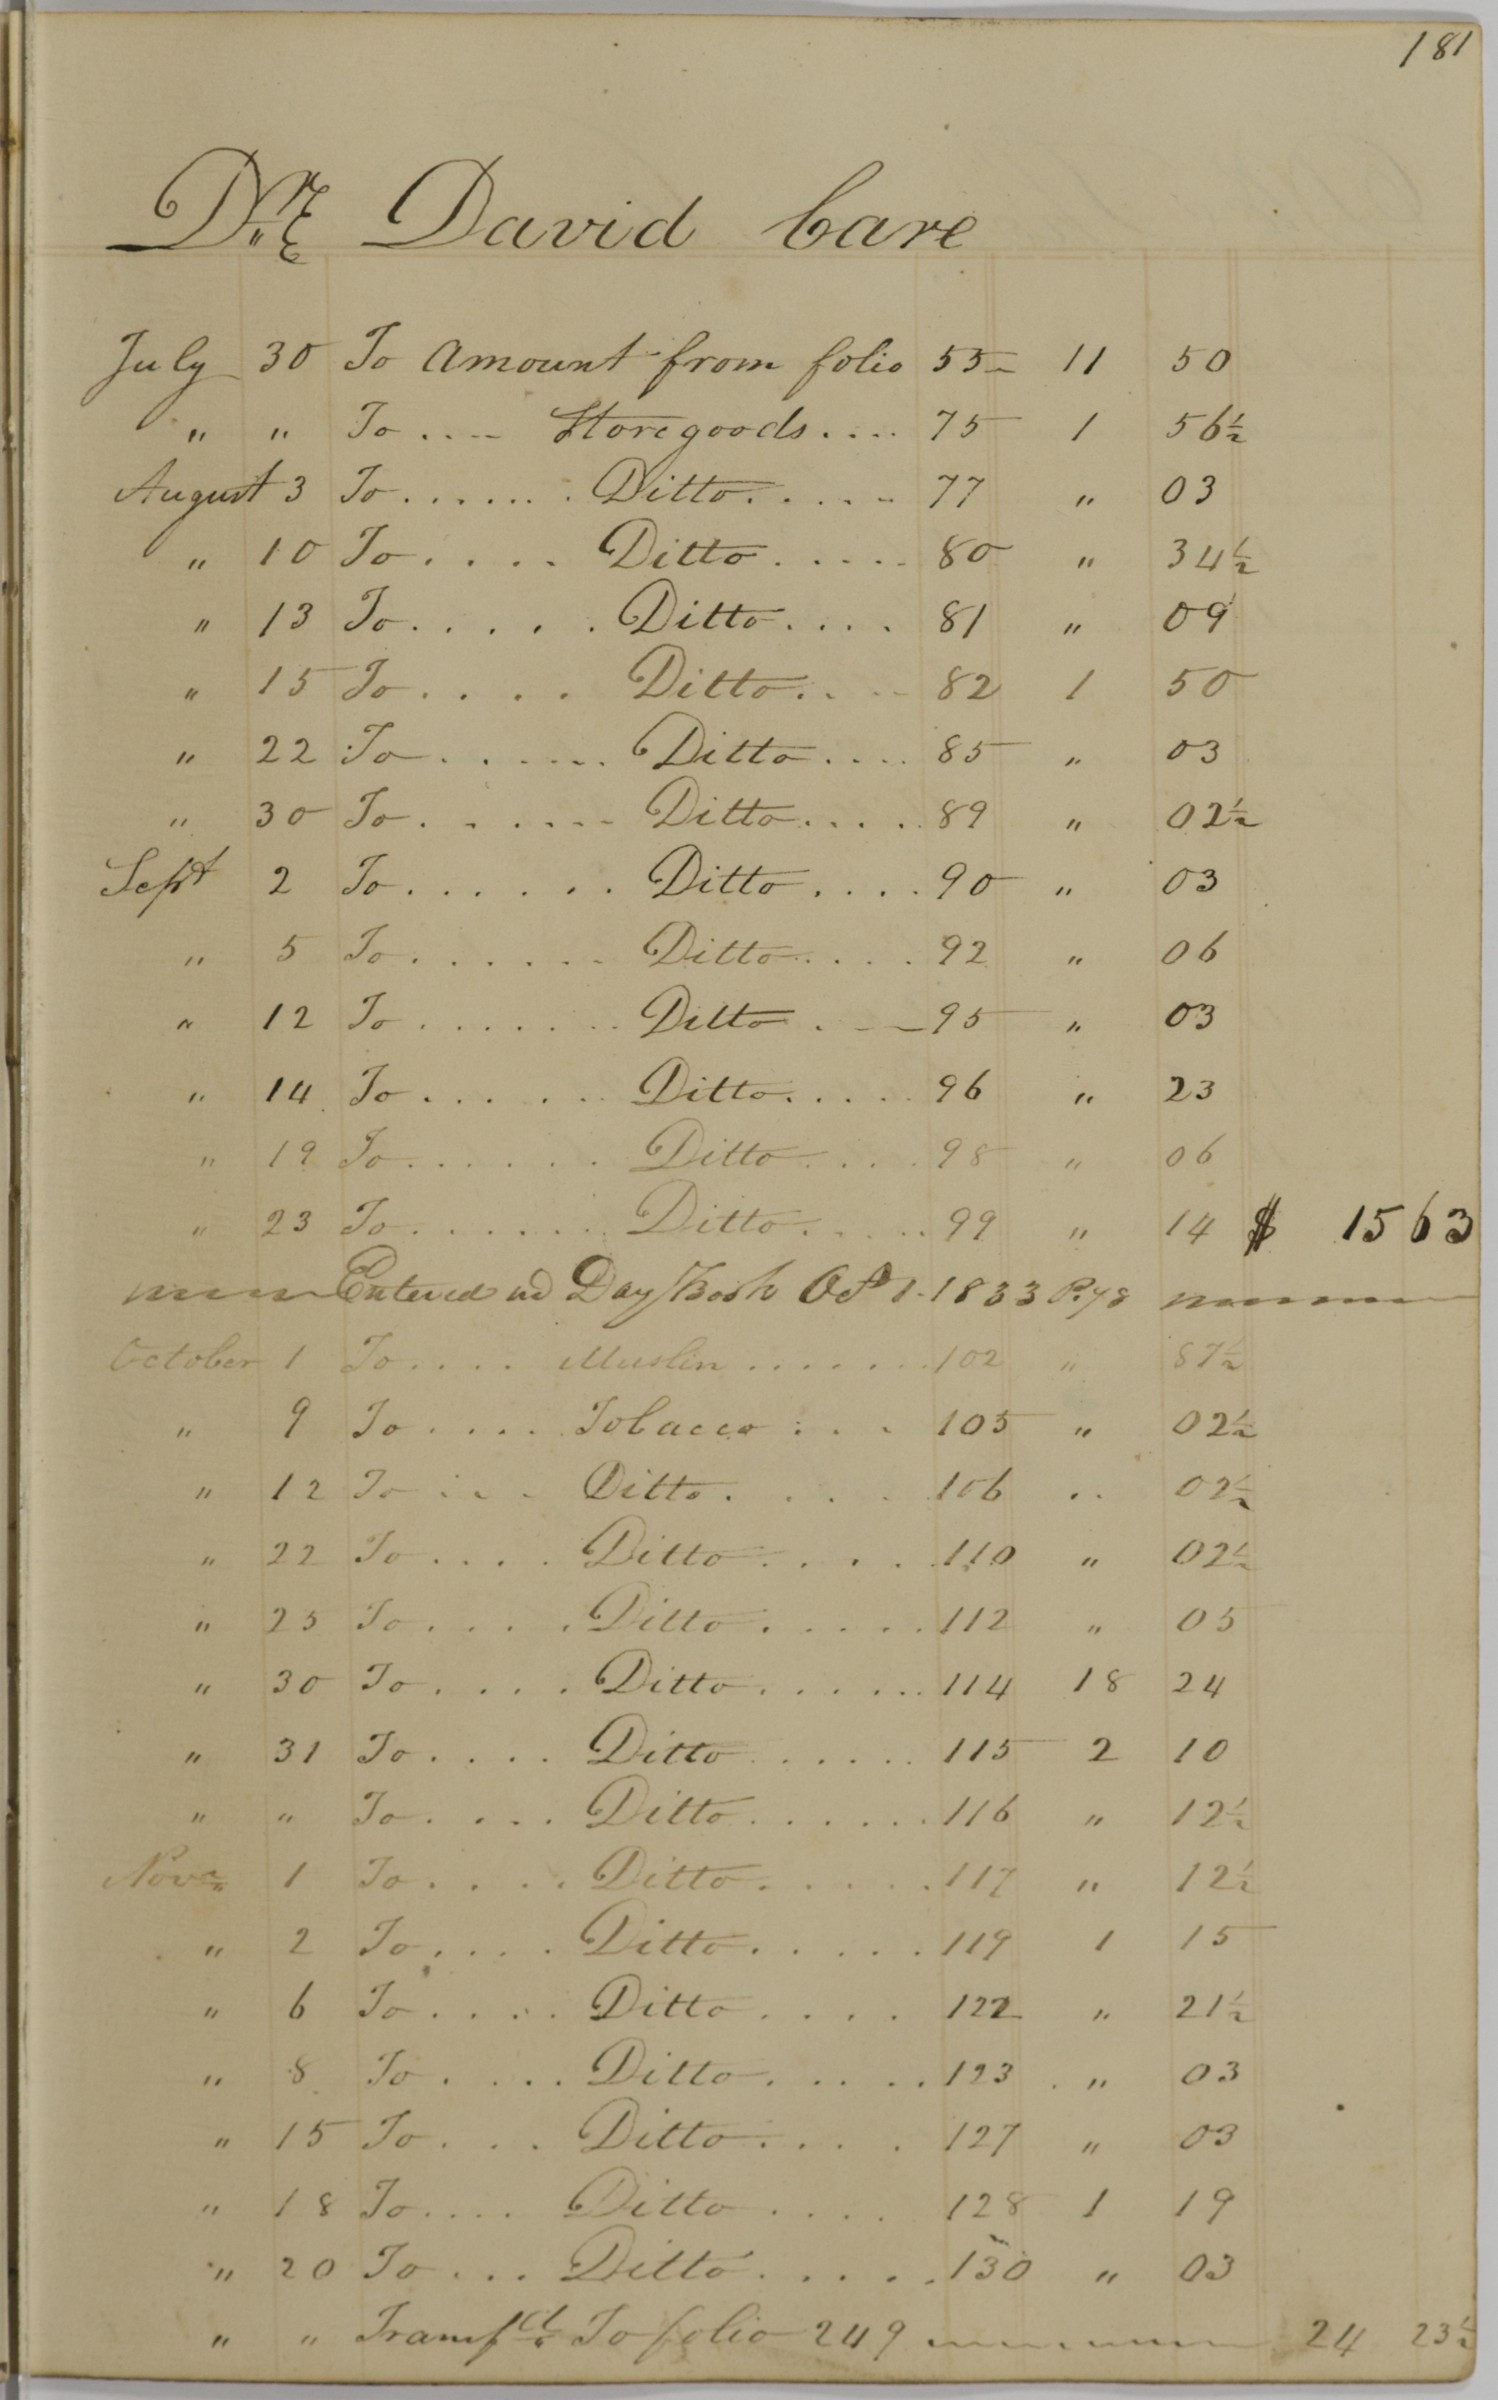 181
Dr. David Care
July 30 To Amount from folio 55 11 50
" " To .... Storegoods .... 75 1 56½
August 3 To ....... Ditto ..... 77 " 03
" 10 To .... Ditto ..... 80 " 34½
" 13 To ...... Ditto .... 81 " 09
" 15 To .... Ditto .... 82 1 50
" 22 To ...... Ditto .... 85 " 03
" 30 To ...... Ditto .... 89 " 02½
Sept 2 To ...... Ditto .... 90 " 03
" 5 To ...... Ditto .... 92 " 06
" 12 To ...... Ditto ... 95 " 03
" 14 To ...... Ditto ..... 96 " 23
" 19 To ...... Ditto .... 98 " 06
" 23 To ...... Ditto ..... 99 " 14 $ 15 63
Entered in Day Book Oct 1. 1833 P. 78
October 1 To .... Muslin ....... 102 " 87½
" 9 To .... Tobacco ... 105 " 02½
" 12 To .... Ditto .... 106 " 02½
" 22 To .... Ditto ..... 110 " 02½
" 25 To .... Ditto ..... 112 " 05
" 30 To .... Ditto ...... 114 18 24
" 31 To .... Ditto ...... 115 2 10
" " To .... Ditto ...... 116 " 12½
Novr 1 To .... Ditto ..... 117 " 12½
" 2 To .... Ditto ..... 119 1 15
" 6 To .... Ditto .... 122 " 21½
" 8 To .... Ditto ..... 123 " 03
" 15 To ... Ditto .... 127 " 03
" 18 To .... Ditto .... 128 1 19
" 20 To ... Ditto ..... 130 " 03
" " Transfd To folio 249 24 23½